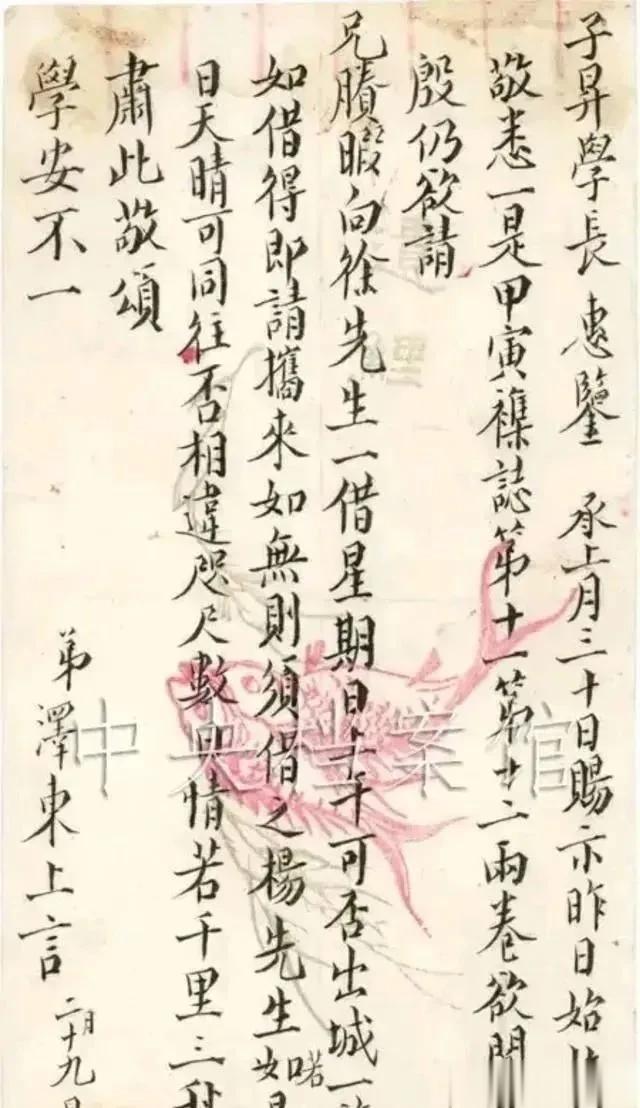 子昇學長 惠鑒 承上月三十日賜示昨日始
敬悉一是甲寅雜誌第十一第十二兩卷欲閱
殷仍欲請
兄賡暇向徐先生一借星期日上午可否出城一
如借得即請攜來如無則須借之楊先生如是
日天晴可同往否相違咫尺數日情若千里三秋
肅此敬頌
學安不一
弟澤東上言 二月十九日
中央档案馆